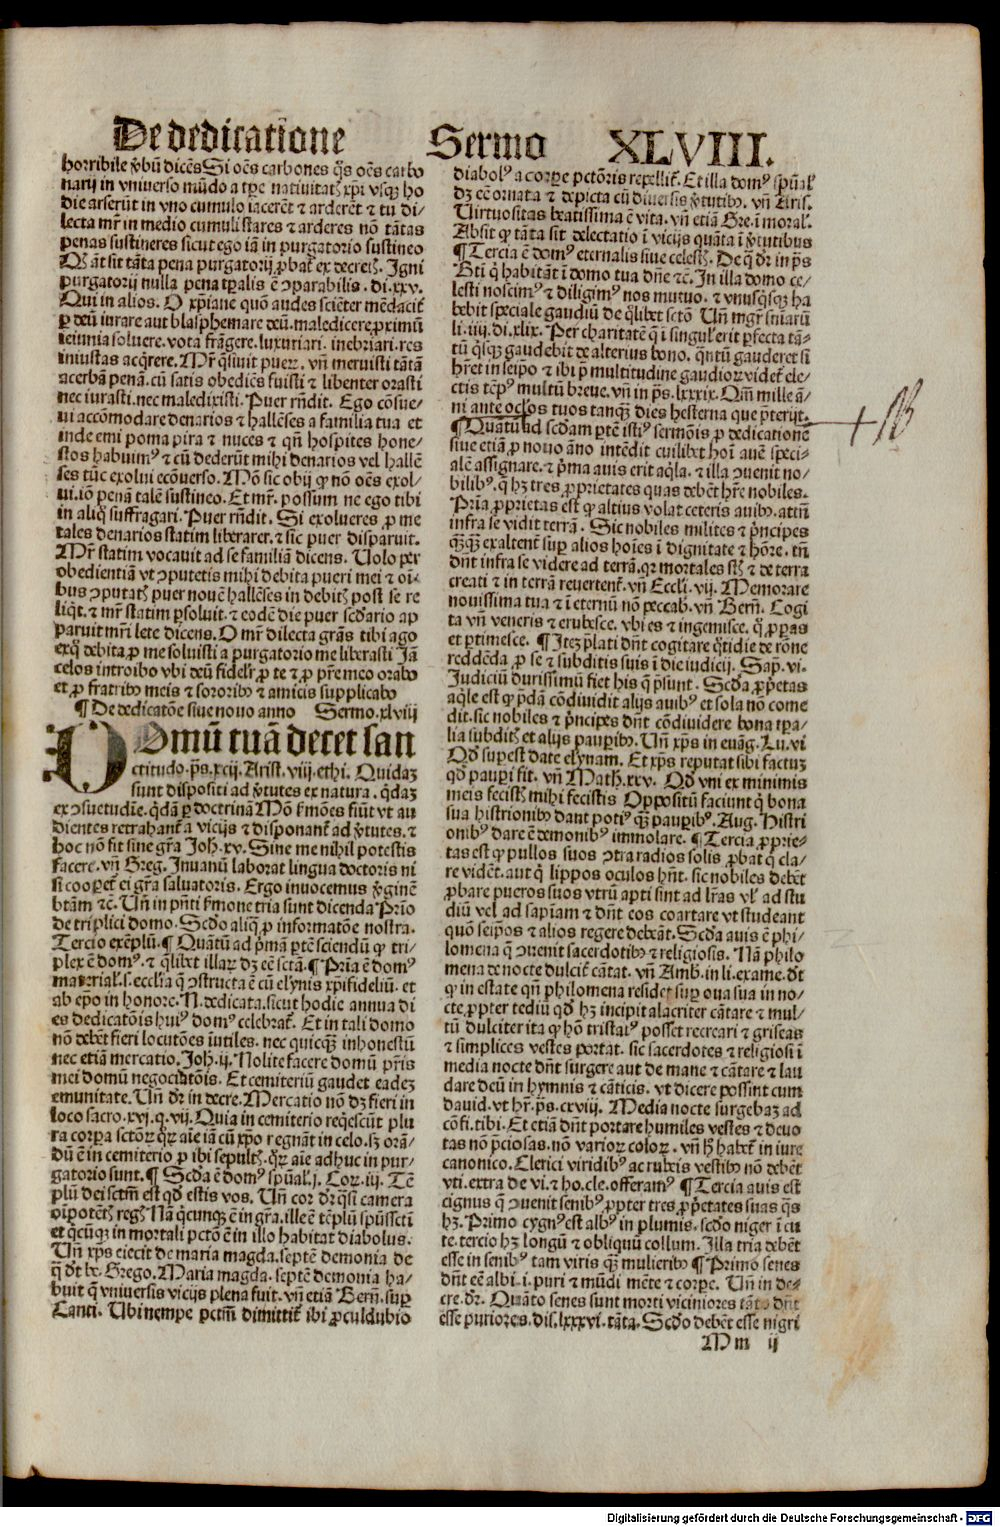 De dedicatione Sermo XLVIII.
horribile v̄bū dicēs Si oēs carbones q̄s oēs carbo
narij in vniverso mūdo a tꝑe nativitatꝭ xp̄i vsqꝫ ho
die arserūt in vno cumulo iacerēt ⁊ arderēt ⁊ tu di⸗
lecta mr̄ in medio cumuli stares ⁊ arderes nō tātas
penas sustineres sicut ego iā in purgatorio sustineo
Qꝭ āt sit tāta pena purgatorij ꝓbat̄ ex decretꝭ. Igni
purgatorij nulla pena tꝑalis ē ꝯparabilis. di. xxv.
Qui in alios. O xp̄iane quō audes sciēter mēdacit̄
ꝑ deū iurare aut blasphemare deū. maledicere ꝓximū
ieiunia soluere. vota frāgere. luxuriari. inebriari. res
iniustas acq̄rere. Mr̄ q̄sivit puerꝫ. vn̄ meruisti tātā
acerbā penā. cū satis obediēs fuisti ⁊ libenter orasti
nec iurasti. nec maledixisti. Puer rn̄dit. Ego cōsue⸗
vi accōmodare denarios ⁊ hallēses a familia tua et
inde emi poma pira ⁊ nuces ⁊ qn̄ hospites hone⸗
stos habuimꝰ ⁊ cū dederūt mihi denarios vel hallē
ses tūc exolui ecōverso. Mō sic obij qꝫ nō oēs exol⸗
vi. iō penā talē sustineo. Et mr̄. possum ne ego tibi
in aliq̄ suffragari. Puer rn̄dit. Si exolueres ꝓ me
tales denarios statim liberarer. ⁊ sic puer disparuit.
Mr̄ statim vocavit ad se familiā dicens. Uolo ꝑ
obedientiā vt ꝯputetis mihi debita pueri mei ⁊ oi⸗
bus ꝯputatꝭ puer novē hallēses in debitꝭ post se re
liq̄t. ⁊ mr̄ statim ꝑsoluit. ⁊ eodē die puer sc̄dario ap
paruit mr̄i lete dicens. O mr̄ dilecta grās tibi ago
ex q̄ debita ꝓ me soluisti a purgatorio me liberasti Jā
celos introibo vbi deū fidelr̄ ꝓ te ⁊ ꝓ pr̄e meo orabo
et ꝓ fratribꝰ meis ⁊ sororibꝰ ⁊ amicis supplicabo
¶ De dedicatōe sive novo anno Sermo. xlviij
DOmū tuā decet san
ctitudo. p̄s. xcij. Arist. viij. ethi. Quidaꝫ
sunt dispositi ad v̄tutes ex natura. q̄daꝫ
ex ꝯsuetudīe. q̄dā ꝑ doctrinā Mō ẜmōes fiūt vt au
dientes retrahant̄ a vicijs ⁊ disponant̄ ad v̄tutes. ⁊
hoc nō fit sine gr̄a Joh. xv. Sine me nihil potestis
facere. vn̄ Greg. In vanū laborat lingua doctoris ni
si cooꝑet̄ ei gr̄a salvatoris. Ergo invocemus v̄ginē
btām ⁊c̄. Un̄ in pn̄ti ẜmone tria sunt dicenda Prīo
de triplici domo. Sc̄do aliq̄ ꝓ informatōe nostra.
Tercio exēplū. ¶ Quātū ad p̄mā ꝑtē sciendū qꝫ tri⸗
plex ē domꝰ. ⁊ q̄libet illaꝝ dꝫ eē sctā. ¶ Pria ē domꝰ
material̓. s. ecclia q̄ ꝯstructa ē cū elynis xp̄ifideliū. et
ab ep̄o in honore. N. dedicata. sicut hodie annua di
es dedicatōis huiꝰ domꝰ celebrat̄. Et in tali domo
nō debēt fieri locutōes īutiles. nec quicqꝫ inhonestū
nec etiā mercatio. Joh. ij. Nolite facere domū pr̄is
mei domū negociatōis. Et cemiteriū gaudet eadeꝫ
emunitate. Un̄ dr̄ in decre. Mercatio nō dꝫ fieri in
loco sacro. xvi. q. vij. Quia in cemiterio reqͥescūt plu
ra corꝑa sctōꝝ qͣꝝ aīe iā cū xp̄o regnāt in celo. sꝫ orā⸗
dū ē in cemiterio ꝓ ibi sepultꝭ. qͣꝝ aīe adhuc in pur⸗
gatorio sunt. ¶ Sc̄da ē domꝰ sp̄ual̓. j. Coꝝ. iij. Tē
plū dei sctm̄ est qd̄ estis vos. Un̄ cor dr̄ q̄si camera
oīpotētꝭ regꝭ Nā qͥcunqꝫ ē in gr̄a. ille ē tēplū sp̄ūssctī
et qͥcūqꝫ in mortali pctō ē in illo habitat diabolus.
Un̄ xp̄s eiecit de maria magda. septē demonia de
q̄ dt̄ be. Grego. Maria magda. septē demonia ha⸗
buit q̄ vniversis vicijs plena fuit. vn̄ etiā Bern̄. suꝑ
Canti. Ubi nempe pctm̄ dimittit̄ ibi ꝓculdubio
diabolꝰ a corꝑe pctōris repellit̄. Et illa domꝰ sp̄ual̓
dꝫ eē ornata ⁊ depicta cū diversis v̄tutibꝰ. vn̄ Aris.
Uirtuositas beatissima ē vita. vn̄ etiā Gre. ī moral̓.
Absit qꝫ tāta sit delectatio ī vicijs quāta ī v̄tutibus
¶ Tercia ē domꝰ eternalis sive celestꝭ. De q̄ dr̄ in p̄s
Bti q̄ habitāt ī domo tua dn̄e ⁊c̄. In illa domo ce⸗
lesti noscimꝰ ⁊ diligimꝰ nos mutuo. ⁊ vnusqͥsqꝫ ha
bebit speciale gaudiū de q̄libet sctō. Un̄ mgr̄ sn̄iarū
li. iiij. di. xlix. Per charitatē q̄ ī singul̓ erit ꝑfecta tā⸗
tū qͥsqꝫ gaudebit de alterius bono. q̄ntū gauderet si
hr̄et in seipo ⁊ ibi ꝓ multitudine gaudioꝝ videt̄ ele⸗
ctis tēpꝰ multū breve. vn̄ in p̄s. lxxxix. Qm̄ mille ā⸗
ni ante oclos tuos tanqꝫ dies hesterna que p̄terijt.
¶ Quātū ad sc̄dam ꝑtē istiꝰ sermōis ꝓ dedicatione
sive etiā ꝓ novo āno intēdit cuilibet hoī avē speci⸗
alē assignare. ⁊ p̄ma avis erit aqͥla. ⁊ illa ꝯvenit no⸗
bilibꝰ. q̄ hꝫ tres ꝓprietates quas debēt hr̄e nobiles.
Pria ꝓprietas est qꝫ altius volat ceteris avibꝰ. attn̄
infra se vidit terrā. Sic nobiles milites ⁊ p̄ncipes
qͣꝫqͣꝫ exaltent̄ suꝑ alios hoīes ī dignitate ⁊ hōre. tn̄
dn̄t infra se videre ad terrā. qꝛ mortales st̄ ⁊ de terra
creati ⁊ in terrā revertent̄. vn̄ Eccli. vij. Memorare
novissima tua ⁊ ī eternū nō peccab. vn̄ Bern̄. Cogi
ta vn̄ veneris ⁊ erubesce. vbi es ⁊ ingemisce. q̄ ꝓꝑas
et ꝑtimesce. ¶ Iteꝫ p̄lati dn̄t cogitare qͦtidie de rōne
reddēda ꝓ se ⁊ subditis suis ī die iudicij. Sap̄. vi.
Judiciū durissimū fiet his q̄ p̄sunt. Sc̄da ꝓp̄etas
aqͥle est qꝫ p̄dā cōdividit alijs avibꝰ et sola nō come
dit. sic nobiles ⁊ p̄ncipes dn̄t cōdividere bona tꝑa⸗
lia subditꝭ et alijs pauꝑibꝰ. Un̄ xp̄s in evāg. Lu. vi
Qd̄ suꝑest date elynam. Et xp̄s reputat sibi factuꝫ
qd̄ pauꝑi fit. vn̄ Math. xxv. Qd̄ vni ex minimis
meis fecistꝭ mihi fecistis Oppositū faciunt q̄ bona
sua histrionibꝰ dant potiꝰ qͣꝫ pauꝑibꝰ. Aug. Histri
onibꝰ dare ē demonibꝰ immolare. ¶ Tercia ꝓprie⸗
tas est qꝫ pullos suos ꝯtra radios solis ꝓbat q̄ cla⸗
re vidēt. aut q̄ lippos oculos hn̄t. sic nobiles debēt
ꝓbare pueros suos vtrū apti sint ad lr̄as vl̓ ad stu
diū vel ad sapiam ⁊ dn̄t eos coartare vt studeant
quō seipōs ⁊ alios regere debeāt. Sc̄da avis ē phi⸗
lomena q̄ ꝯvenit sacerdotibꝰ ⁊ religiosis. Nā philo
mena de nocte dulcit̄ cātat. vn̄ Amb. in li. exame. dt̄
qꝫ in estate qn̄ philomena residet suꝑ ova sua in no⸗
cte. ꝓpter tediū qd̄ hꝫ incipit alacriter cātare ⁊ mul⸗
tū dulciter ita qꝫ hō tristatꝰ posset recreari ⁊ griseas
⁊ simplices vestes portat. sic sacerdotes ⁊ religiosi ī
media nocte dn̄t surgere aut de mane ⁊ cātare ⁊ lau
dare deū in hymnis ⁊ cāticis. vt dicere possint cum
david. vt hr̄. p̄s. cxviij. Media nocte surgebaꝫ ad
cōfi. tibi. Et etiā dn̄t portare humiles vestes ⁊ devo
tas nō p̄ciosas. nō varioꝝ coloꝝ. vn̄ hꝭ habet̄ in iure
canonico. Clerici viridibꝰ ac rubeis vestibꝰ nō debēt
vti. extra de vi. ⁊ ho. cle. offeramꝰ ¶ Tercia avis est
cignus q̄ ꝯvenit senibꝰ ꝓpter tres ꝓp̄etates suas q̄s
hꝫ. Primo cygnꝰ est albꝰ in plumis. sc̄do niger ī cu
te. tercio hꝫ longū ⁊ obliquū collum. Illa tria debēt
esse in senibꝰ tam viris qͣꝫ mulieribꝰ ¶ Primō senes
dn̄t eē albi. i. puri ⁊ mūdi mēte ⁊ corꝑe. Un̄ in de⸗
cre. dr̄. Quāto senes sunt morti viciniores tāto dn̄t
esse puriores. dis. lxxxvi. tāta. Sc̄do debēt esse nigri
Mm ij
Digitalisierung gefördert durch die Deutsche Forschungsgemeinschaft - DFG